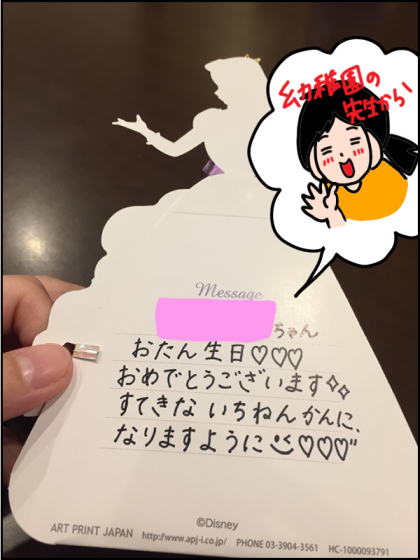 幼稚園の
先生から
Message
ちゃん
おたん生日♡♡♡
おめでとうございます✧✧
すてきな いちねんかんに、
なりますように☺♡♡♡"
©Disney
ART PRINT JAPAN http://www.apj-i.co.jp/ PHONE 03-3904-3561 HC-1000093791